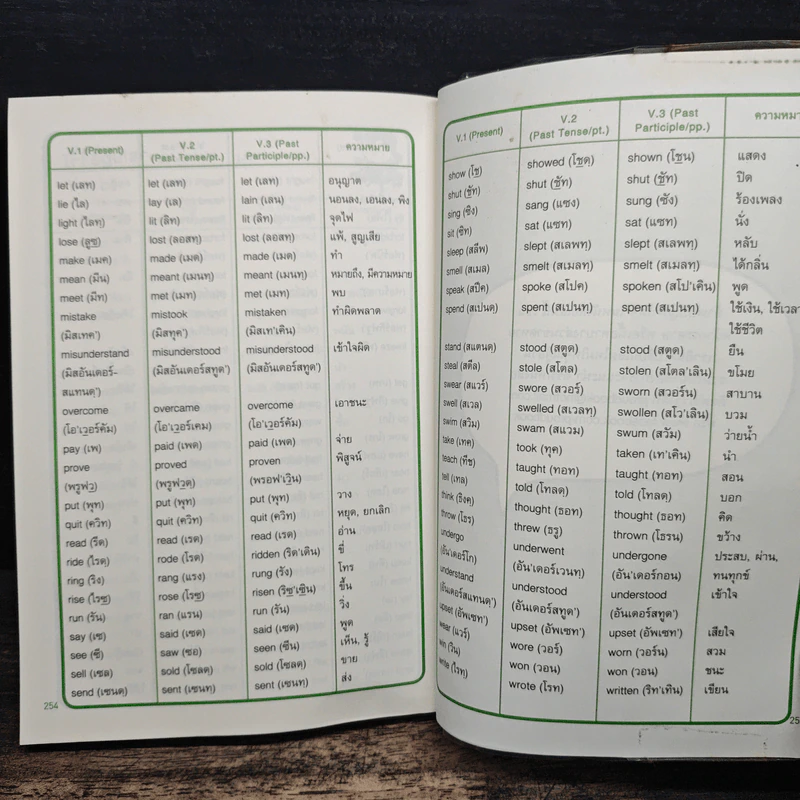 V.1 (Present) V.2 (Past Tense/pt.) V.3 (Past Participle/pp.) ความหมาย
let (เลท) let (เลท) let (เลท) อนุญาต
lie (ไล) lay (เล) lain (เลน) นอนลง, เอนลง, พิง
light (ไลท) lit (ลิท) lit (ลิท) จุดไฟ
lose (ลูซ) lost (ลอสท) lost (ลอสท) แพ้, สูญเสีย
make (เมค) made (เมด) made (เมด) ทำ
mean (มีน) meant (เมนท) meant (เมนท) หมายถึง, มีความหมาย
meet (มีท) met (เมท) met (เมท) พบ
mistake mistook mistaken ทำผิดพลาด
(มิสเทค') (มิสทุค') (มิสเท'เคิน)
misunderstand misunderstood misunderstood เข้าใจผิด
(มิสอันเดอร์- (มิสอันเดอร์สทูด') (มิสอันเดอร์สทูด')
สแทนด')
overcome overcame overcome เอาชนะ
(โอ'เวอร์คัม) (โอ'เวอร์เคม) (โอ'เวอร์คัม)
pay (เพ) paid (เพด) paid (เพด) จ่าย
prove proved proven พิสูจน์
(พรูฟว) (พรูฟวด) (พรอฟ'เวิน)
put (พุท) put (พุท) put (พุท) วาง
quit (ควิท) quit (ควิท) quit (ควิท) หยุด, ยกเลิก
read (รีด) read (เรด) read (เรด) อ่าน
ride (ไรด) rode (โรด) ridden (ริด'เดิน) ขี่
ring (ริง) rang (แรง) rung (รัง) โทร
rise (ไรซ) rose (โรซ) risen (ริซ'เซิน) ขึ้น
run (รัน) ran (แรน) run (รัน) วิ่ง
say (เซ) said (เซด) said (เซด) พูด
see (ซี) saw (ซอ) seen (ซีน) เห็น, รู้
sell (เซล) sold (โซลด) sold (โซลด) ขาย
send (เซนด) sent (เซนท) sent (เซนท) ส่ง
254
V.1 (Present) V.2 (Past Tense/pt.) V.3 (Past Participle/pp.)
show (โช) showed (โชด) shown (โชน) แสดง
shut (ชัท) shut (ชัท) shut (ชัท) ปิด
sing (ซิง) sang (แซง) sung (ซัง) ร้องเพลง
sit (ซิท) sat (แซท) sat (แซท) นั่ง
sleep (สลีพ) slept (สเลพท) slept (สเลพท) หลับ
smell (สเมล) smelt (สเมลท) smelt (สเมลท) ได้กลิ่น
speak (สปีค) spoke (สโปค) spoken (สโป'เคิน) พูด
spend (สเปนด) spent (สเปนท) spent (สเปนท) ใช้เงิน, ใช้เวลา
ใช้ชีวิต
stand (สแตนด) stood (สตูด) stood (สตูด) ยืน
steal (สตีล) stole (สโตล) stolen (สโตล'เลิน) ขโมย
swear (สแวร์) swore (สวอร์) sworn (สวอร์น) สาบาน
swell (สเวล) swelled (สเวลท) swollen (สโว'เลิน) บวม
swim (สวิม) swam (สแวม) swum (สวัม) ว่ายน้ำ
take (เทค) took (ทุค) taken (เท'เคิน) นำ
teach (ทีช) taught (ทอท) taught (ทอท) สอน
tell (เทล) told (โทลด) told (โทลด) บอก
think (ธิงค) thought (ธอท) thought (ธอท) คิด
throw (โธร) threw (ธรู) thrown (โธรน) ขว้าง
undergo underwent undergone ประสบ, ผ่าน,
(อันเดอร์โก) (อัน'เดอร์เวนท) (อัน'เดอร์กอน) ทนทุกข์
understand understood understood เข้าใจ
(อันเดอร์สแทนด') (อันเดอร์สทูด') (อันเดอร์สทูด')
upset (อัพเซท') upset (อัพเซท') upset (อัพเซท') เสียใจ
wear (แวร์) wore (วอร์) worn (วอร์น) สวม
win (วิน) won (วอน) won (วอน) ชนะ
write (ไรท) wrote (โรท) written (ริท'เทิน) เขียน